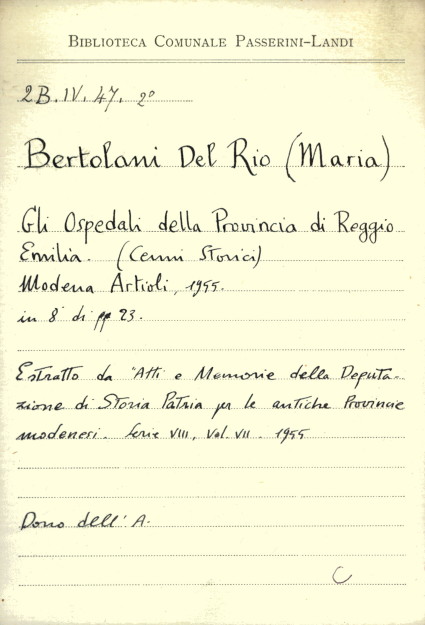 BIBLIOTECA COMUNALE PASSERINI-LANDI
2B.IV.47. 2°
Bertolani Del Rio (Maria)
Gli Ospedali della Provincia di Reggio
Emilia. (Cenni Storici)
Modena Artioli, 1955.
in 8° di pp 23.
Estratto da "Atti e Memorie della Deputa-
zione di Storia Patria per le antiche Provincie
modenesi. Serie VIII, Vol. VII. 1955
Dono dell' A.
C